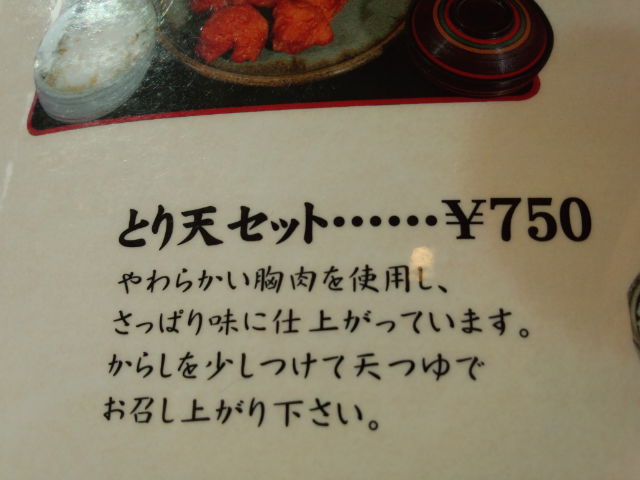 とり天セット・・・・・・¥750
やわらかい胸肉を使用し、
さっぱり味に仕上がっています。
からしを少しつけて天つゆで
お召し上がり下さい。